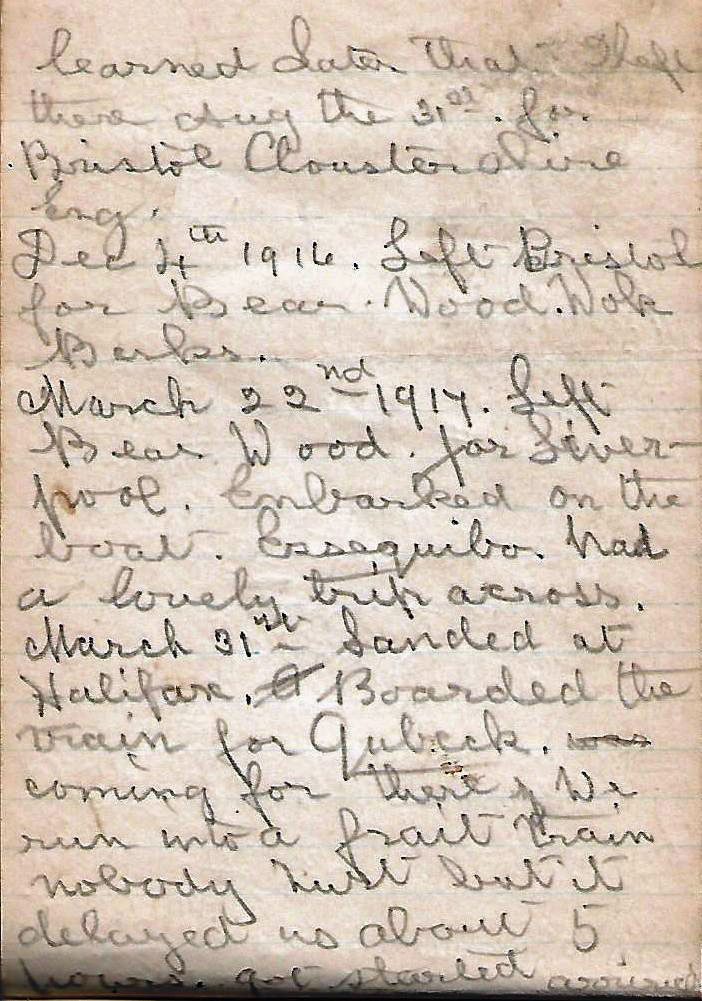 learned later that I left
there Aug the 31st. for
Bristol Cloustershire
Eng.
Dec 4th 1916. Left Bristol
for Bear. Wood. Wok
Berks.
March 22nd 1917. Left
Bear Wood. for Liver-
pool. Embarked on the
boat. Essequibo. had
a lovely trip across.
March 31st Landed at
Halifax. Boarded the
train for Qubeck. was
coming for there & We
run into a frait train
nobody hurt but it
delayed us about 5
hours. got started around